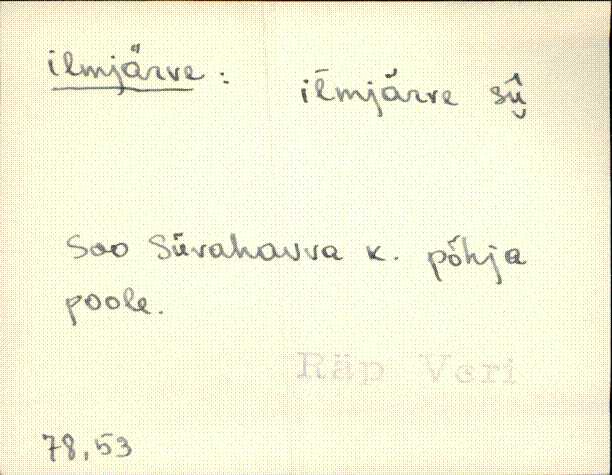 ilmjärve: ilmjärve sii̯
Soo Süvahavva k. põhja
poole.
Räp Veri
78,53